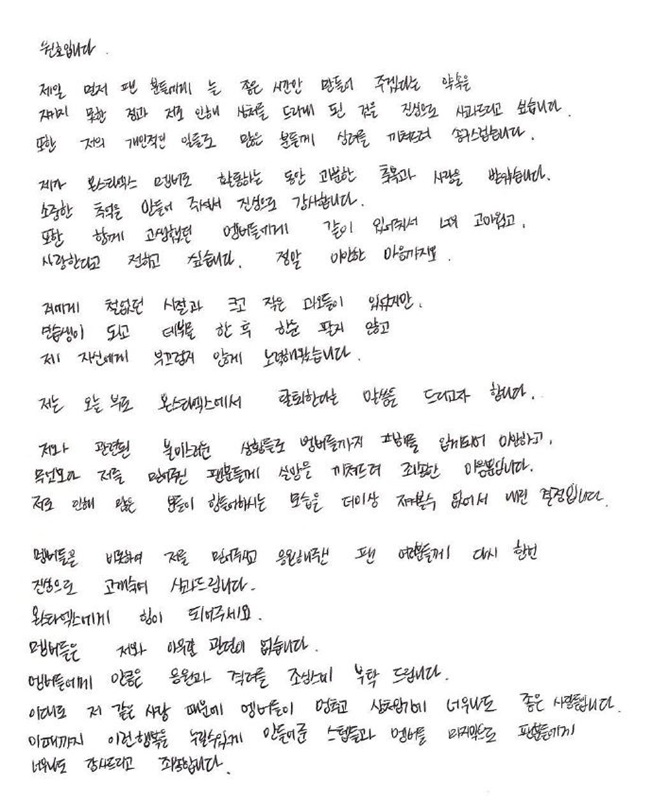 원호입니다.
제일 먼저 팬 분들에게 늘 좋은 시간만 만들어 주겠다는 약속을
지키지 못한 점과 저로 인해 상처를 드리게 된 것을 진심으로 사과드리고 싶습니다.
또한 저의 개인적인 일들로 많은 분들께 심려를 끼쳐드려 송구스럽습니다.
제가 몬스타엑스 멤버로 활동하는 동안 과분한 축복과 사랑을 받았습니다.
소중한 추억을 만들어 주셔서 진심으로 감사합니다.
또한 함께 고생했던 멤버들에게 같이 있어줘서 너무 고마웠고,
사랑한다고 전하고 싶습니다. 정말 미안한 마음까지도.
저에게 철없던 시절과 크고 작은 과오들이 있었지만,
연습생이 되고 데뷔를 한 후 한눈 팔지 않고
제 자신에게 부끄럽지 않게 노력해왔습니다.
저는 오늘 부로 몬스타엑스에서 탈퇴한다는 말씀을 드리고자 합니다.
저와 관련된 불미스러운 상황들로 멤버들까지 피해를 입게되어 미안하고,
무엇보다 저를 믿어주신 팬분들께 실망을 끼쳐드려 죄송한 마음뿐입니다.
저로 인해 많은 분들이 힘들어하시는 모습을 더이상 지켜볼수 없어서 내린 결정입니다.
멤버들을 비롯하여 저를 믿어주시고 응원해주신 팬 여러분들께 다시 한번
진심으로 고개숙여 사과드립니다.
몬스타엑스에게 힘이 되어주세요.
멤버들은 저와 아무런 관련이 없습니다.
멤버들에게 만큼은 응원과 격려를 조심스레 부탁 드립니다.
이대로 저 같은 사람 때문에 멤버들이 멈추고 상처받기에 너무나도 좋은 사람들입니다.
이때까지 이런행복을 누릴수있게 만들어준 스텝들과 멤버들 마지막으로 팬분들에게
너무나도 감사드리고 죄송합니다.